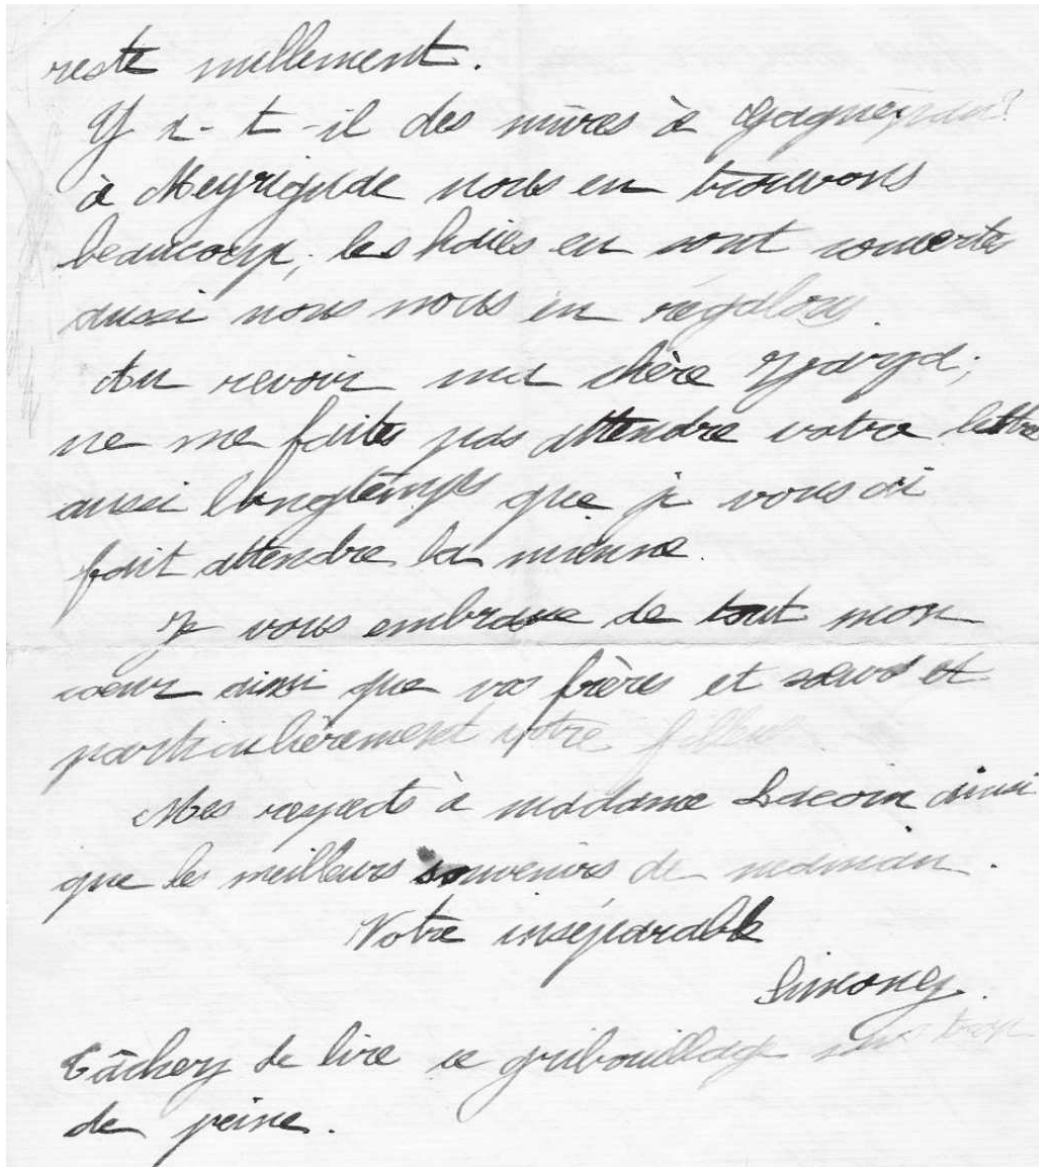 reste nullement.
Y a-t-il des mûres à Gagnepan?
à Meyrignac nous en trouvons
beaucoup; les haies en sont couvertes
aussi nous nous en régalons.
Au revoir ma chère Zaza;
ne me faites pas attendre votre lettre
aussi longtemps que je vous ai
fait attendre la mienne.
Je vous embrasse de tout mon
coeur ainsi que vos frères et soeurs et
particulièrement votre filleul.
Mes respects à madame Lacoin ainsi
que les meilleurs souvenirs de maman.
Votre inséparable
Simone
Tâchez de lire ce gribouillage sans trop
de peine.